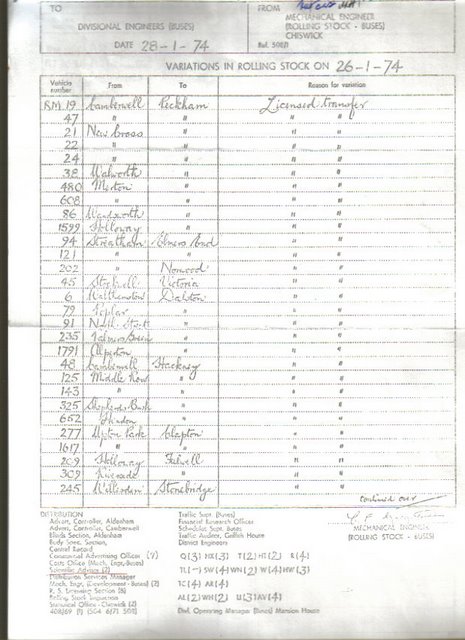 TO
FROM
DIVISIONAL ENGINEERS (BUSES)
MECHANICAL ENGINEER
(ROLLING STOCK - BUSES)
CHISWICK
DATE 28-1-74
Ref. 508/1
VARIATIONS IN ROLLING STOCK ON 26-1-74
Vehicle number From To Reason for variation
RM. 19 Camberwell Peckham Licensed transfer
47 " " " "
21 New Cross " " "
22 " " " "
24 " " " "
38 Walworth " " "
480 Merton " " "
608 " " " "
86 Wandsworth " " "
1599 Holloway " " "
94 Streatham Elmers End " "
121 " " " "
202 " Norwood " "
45 Stockwell Victoria " "
6 Walthamstow Dalston " "
79 Poplar " " "
91 " " "
235 Palmers Green " " "
1791 Alperton " " "
48 Camberwell Hackney " "
125 Middle Row " " "
143 " " " "
325 Shepherds Bush " " "
652 Hendon " " "
277 Upton Park Clapton " "
1617 " " " "
209 Holloway Fulwell " "
309 Riverside " " "
245 Willesden Stonebridge " "
continued over
DISTRIBUTION
Advert. Controller, Aldenham
Advert. Controller, Camberwell
Blinds Section, Aldenham
Body Spec. Section,
Central Record
Commercial Advertising Officer (V)
Costs Office (Mech. Engr. Buses)
Scientific Adviser (2)
Distribution Services Manager
Mech. Engr. (Development - Buses) (2)
R. S. Licensing Section (8)
Rolling Stock Inspection
Statistical Office - Chiswick (2)
Traffic Supt. (Buses)
Financial Research Officer
Schedules Supt. Buses
Traffic Auditor, Griffith House
District Engineers
Q(3) NX(3) T(2) HT(2) R(4)
TL(-) SW(4) WN(2) W(4) HW(3)
TC(4) AR(4)
AL(2) WH(2) U(3) AV(4)
Divl. Operating Manager (Buses) Mansion House
MECHANICAL ENGINEER
(ROLLING STOCK - BUSES)